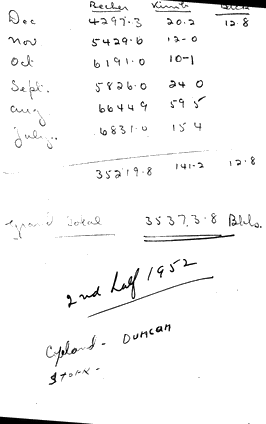 Dec 4297.3 20.2 12.8
Nov 5429.6 12-0
Oct 6191.0 10-1
Sept. 5826.0 24 0
Aug 6644 9 59 5
July.. 6831.0 15 4
35219.8 141-2 12.8
Grand Total 3537 3.8 Bbls.
2nd half 1952
Copland - DUNCAN